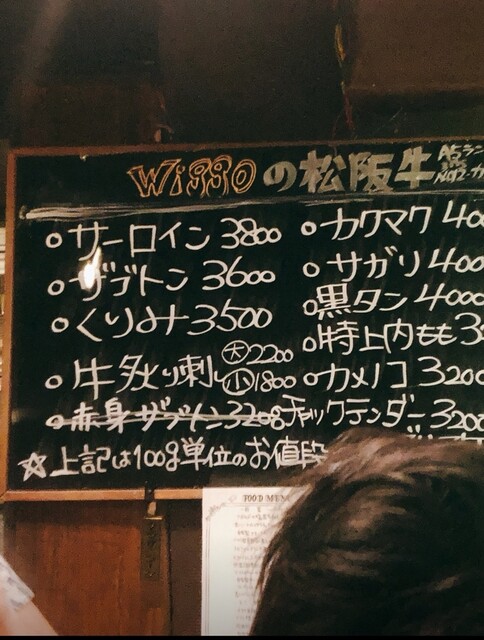 Wiggoの松阪牛
サーロイン 3800
ザブトン 3600
くりみナ3500
牛炙り刺し大2200
小1800
赤身ザブトン3208
カクマク 400
サガリ 400
黒タン 4000
特上内もも 3
カメノコ 3200
チャックテンダー 3200
☆上記は100g単位のお値段
FOOD MENU